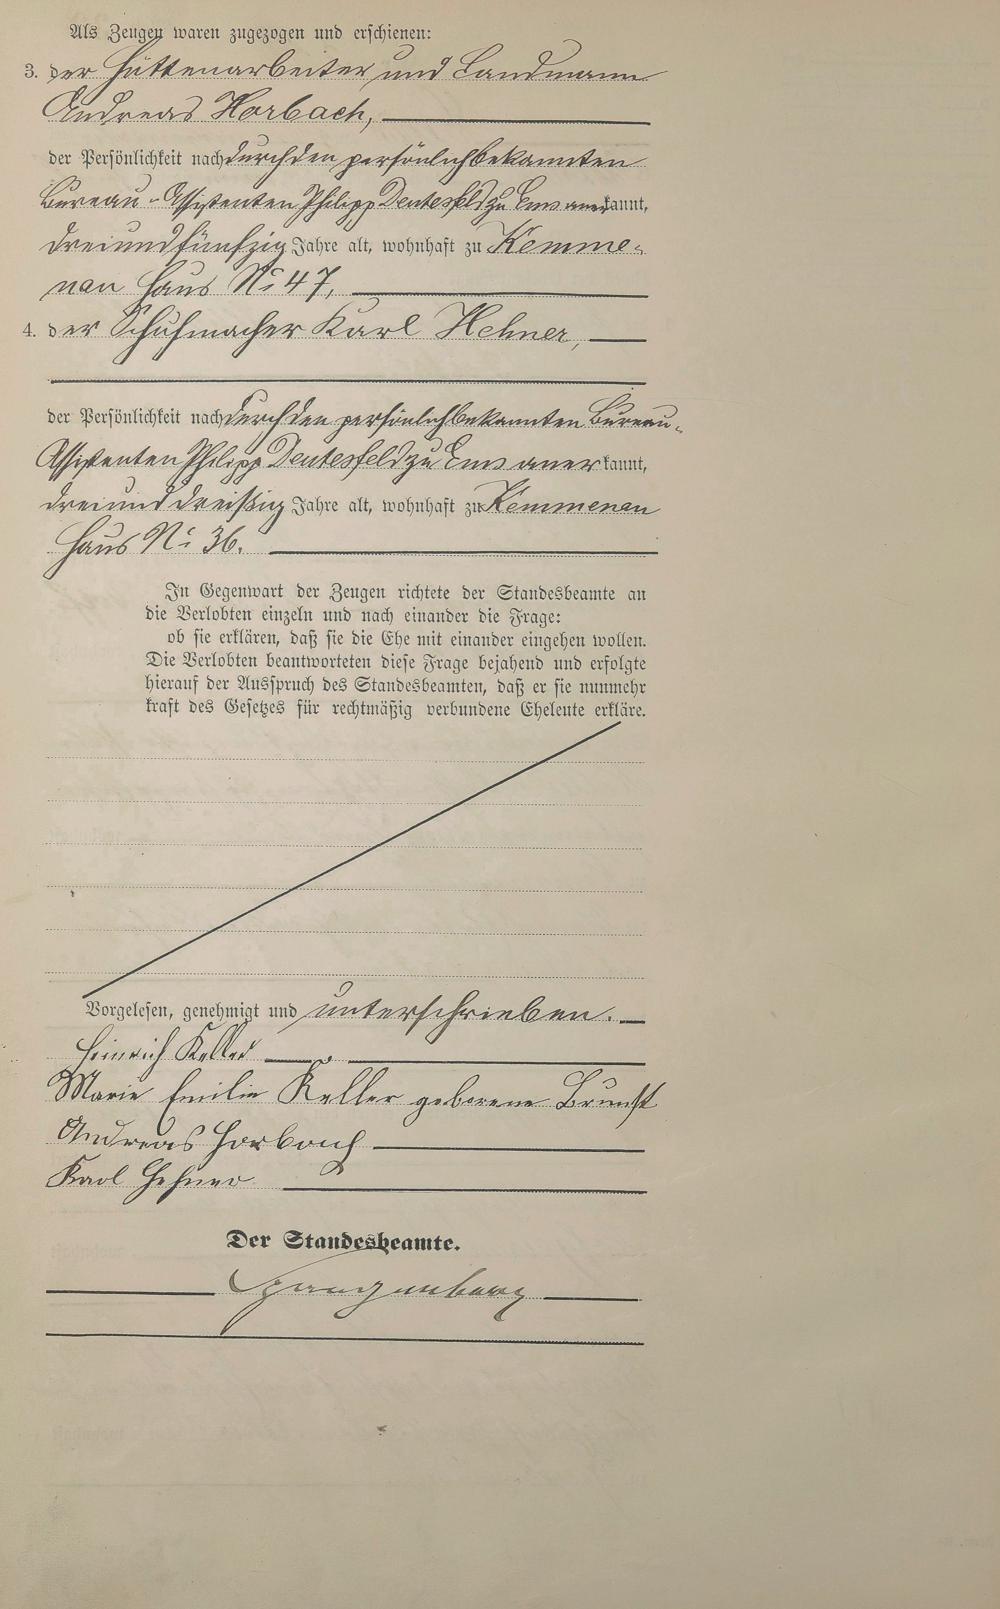 Als Zeugen waren zugezogen und erschienen:
3. der Hüttenarbeiter und Landmann
Andreas Horbach,
der Persönlichkeit nach durch den persönlich bekannten
Bureau-Assistenten Philipp Deutesfeld zu Ems anerkannt,
dreiundfünfzig Jahre alt, wohnhaft zu Kemme-
nau Haus No 47,
4. der Schuhmacher Karl Hehner,
der Persönlichkeit nach durch den persönlich bekannten Bureau-
Assistenten Philipp Deutesfeld zu Ems anerkannt,
dreiunddreißig Jahre alt, wohnhaft zu Kemmenau
Haus No 36.
In Gegenwart der Zeugen richtete der Standesbeamte an
die Verlobten einzeln und nach einander die Frage:
ob sie erklären, daß sie die Ehe mit einander eingehen wollen.
Die Verlobten beantworteten diese Frage bejahend und erfolgte
hierauf der Ausspruch des Standesbeamten, daß er sie nunmehr
kraft des Gesetzes für rechtmäßig verbundene Eheleute erkläre.
Vorgelesen, genehmigt und unterschrieben.
Heinrich Keller
Marie Emilie Keller geborene Brunst
Andreas Horbach
Karl Hehner
Der Standesbeamte.
Spangenberg